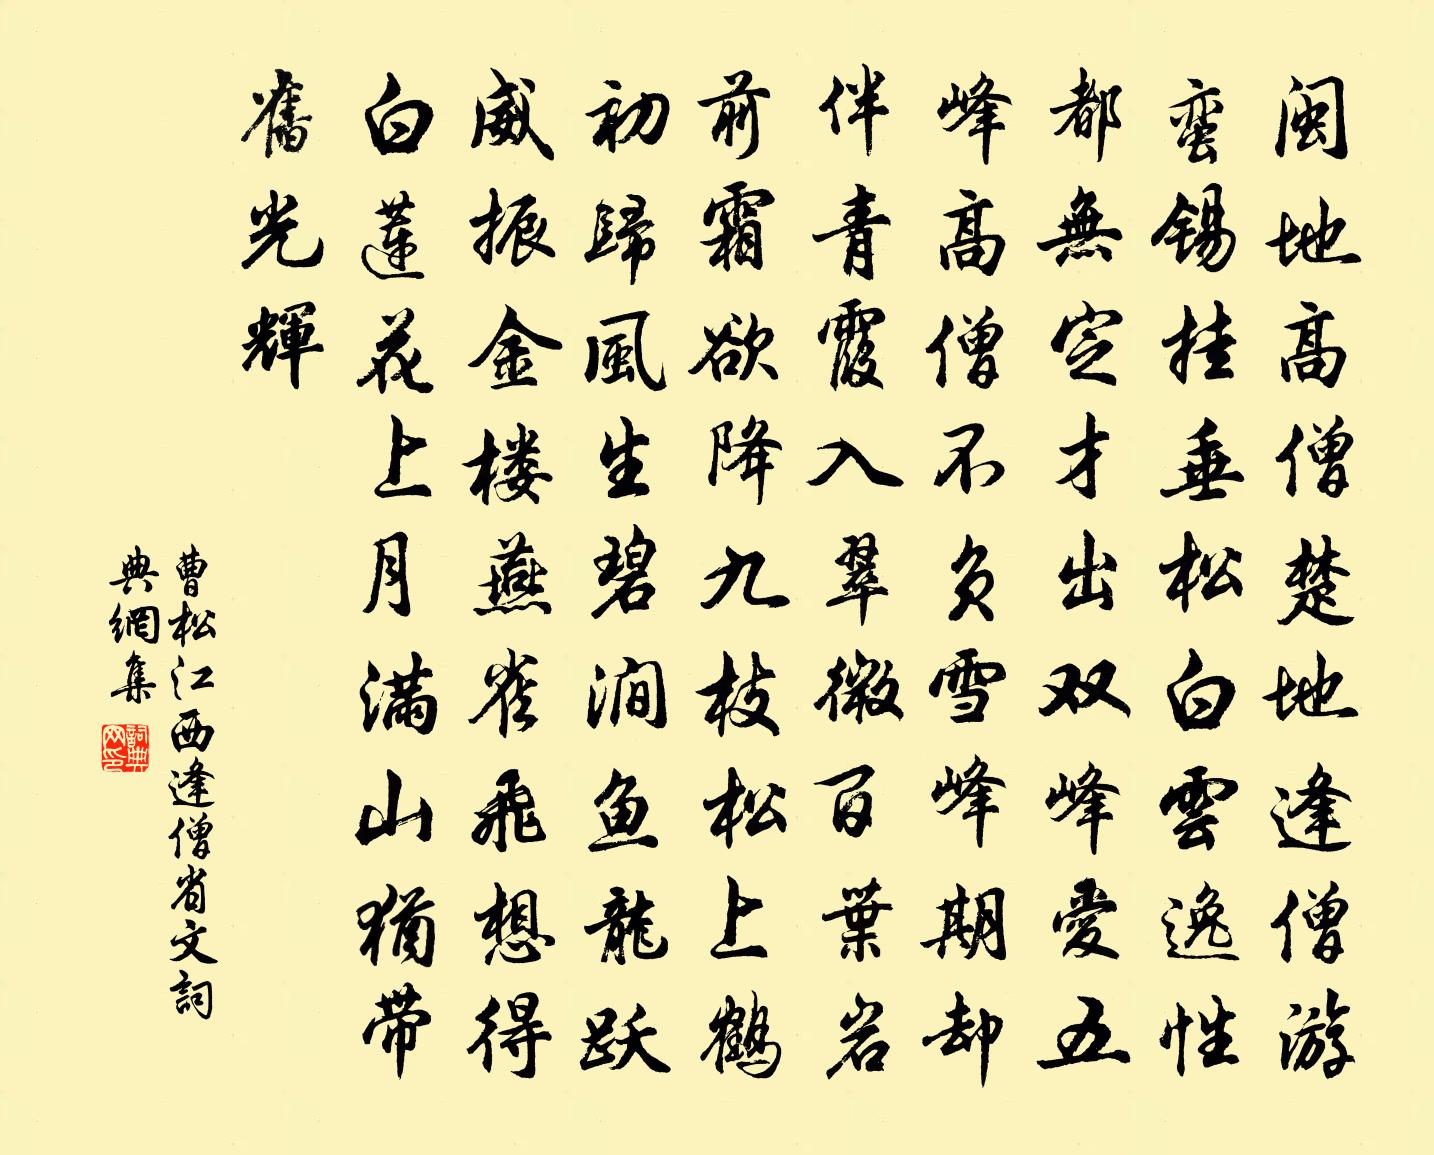 闽地高僧楚地逢僧游
蛮锡挂垂松白雲逸性
都無定才出双峰愛五
峰高僧不负雪峰期却
伴青霞入翠微百葉岩
前霜欲降九枝松上鹤
初歸風生碧澗鱼龍跃
威振金楼燕雀飛想得
白莲花上月满山猶带
舊光輝
曹松江西逢僧省文詞
典網集
詞典网印